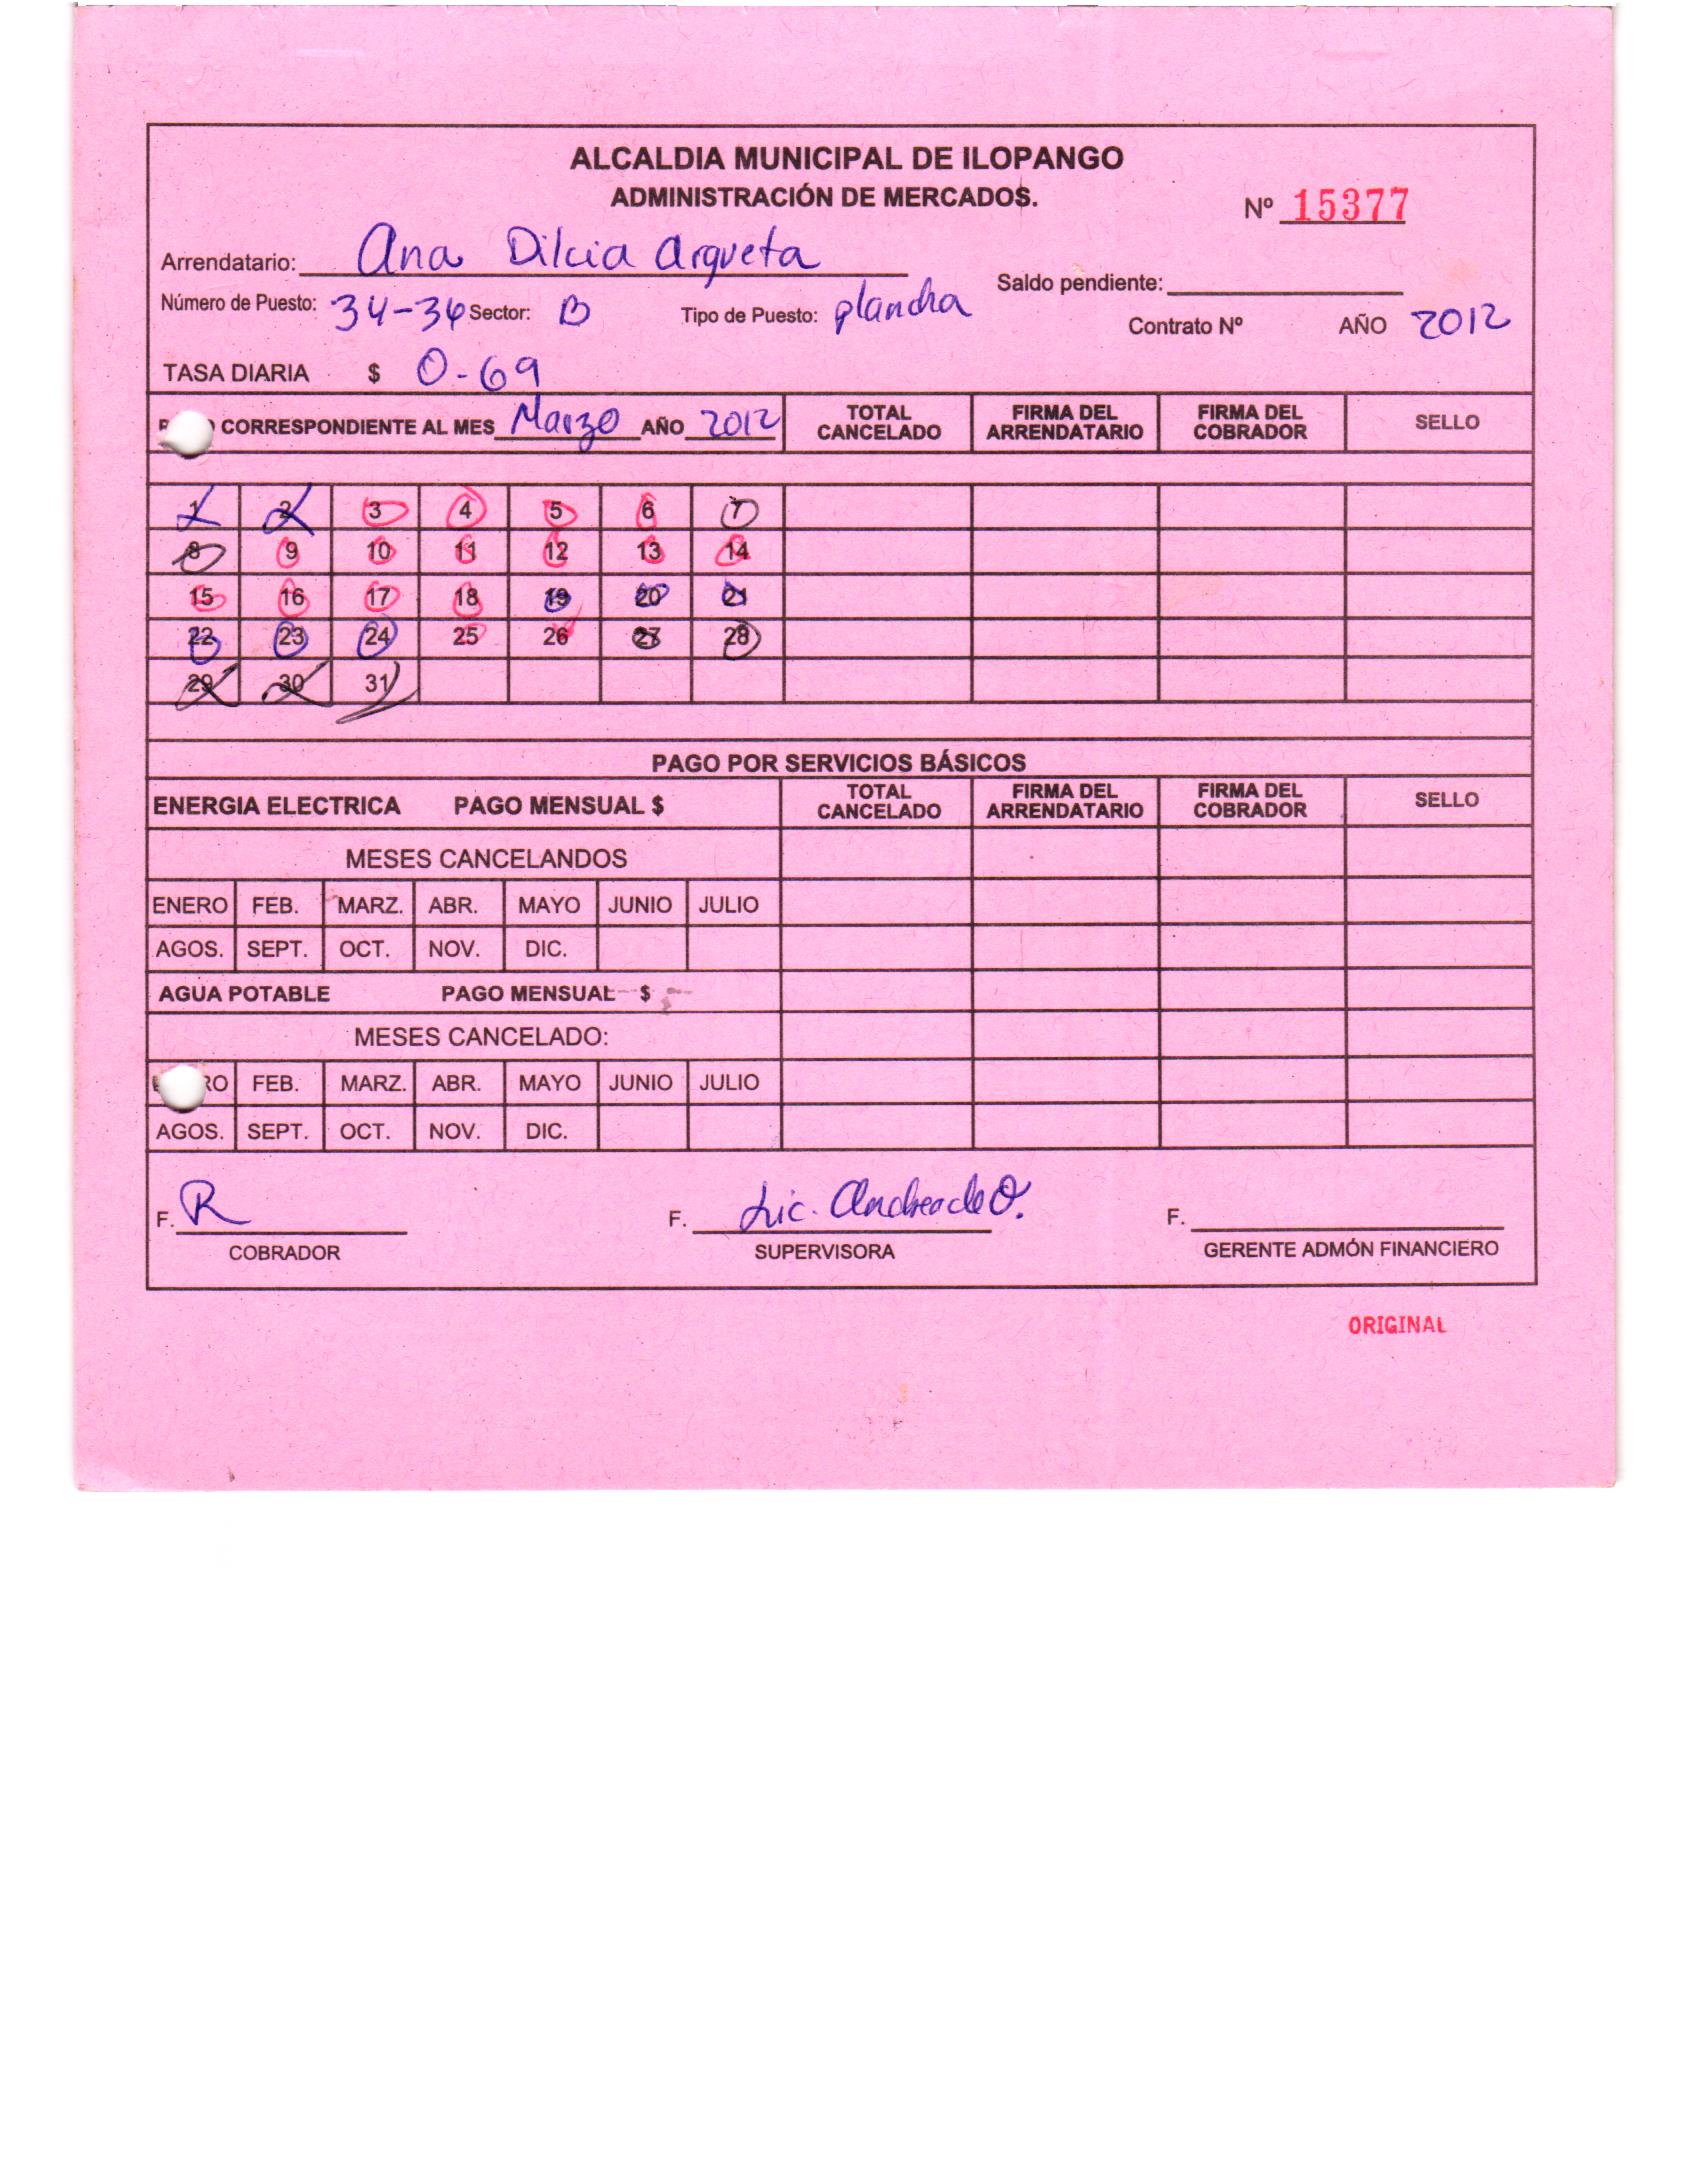 ALCALDIA MUNICIPAL DE ILOPANGO
ADMINISTRACIÓN DE MERCADOS.
Nº 15377
Arrendatario: Ana Dilcia Argueta
Saldo pendiente:
Número de Puesto: 34-36 Sector: B Tipo de Puesto: plancha
Contrato Nº AÑO 2012
TASA DIARIA $ 0-69
CORRESPONDIENTE AL MES Marzo AÑO 2012 TOTAL CANCELADO FIRMA DEL ARRENDATARIO FIRMA DEL COBRADOR SELLO
1 2 3 4 5 6 7
8 9 10 11 12 13 14
15 16 17 18 19 20 21
22 23 24 25 26 27 28
29 30 31
PAGO POR SERVICIOS BÁSICOS
ENERGIA ELECTRICA PAGO MENSUAL $ TOTAL CANCELADO FIRMA DEL ARRENDATARIO FIRMA DEL COBRADOR SELLO
MESES CANCELANDOS
ENERO FEB. MARZ. ABR. MAYO JUNIO JULIO
AGOS. SEPT. OCT. NOV. DIC.
AGUA POTABLE PAGO MENSUAL $
MESES CANCELADO:
FEB. MARZ. ABR. MAYO JUNIO JULIO
AGOS. SEPT. OCT. NOV. DIC.
F. R F. Lic. Andrea de O. F.
COBRADOR SUPERVISORA GERENTE ADMÓN FINANCIERO
ORIGINAL